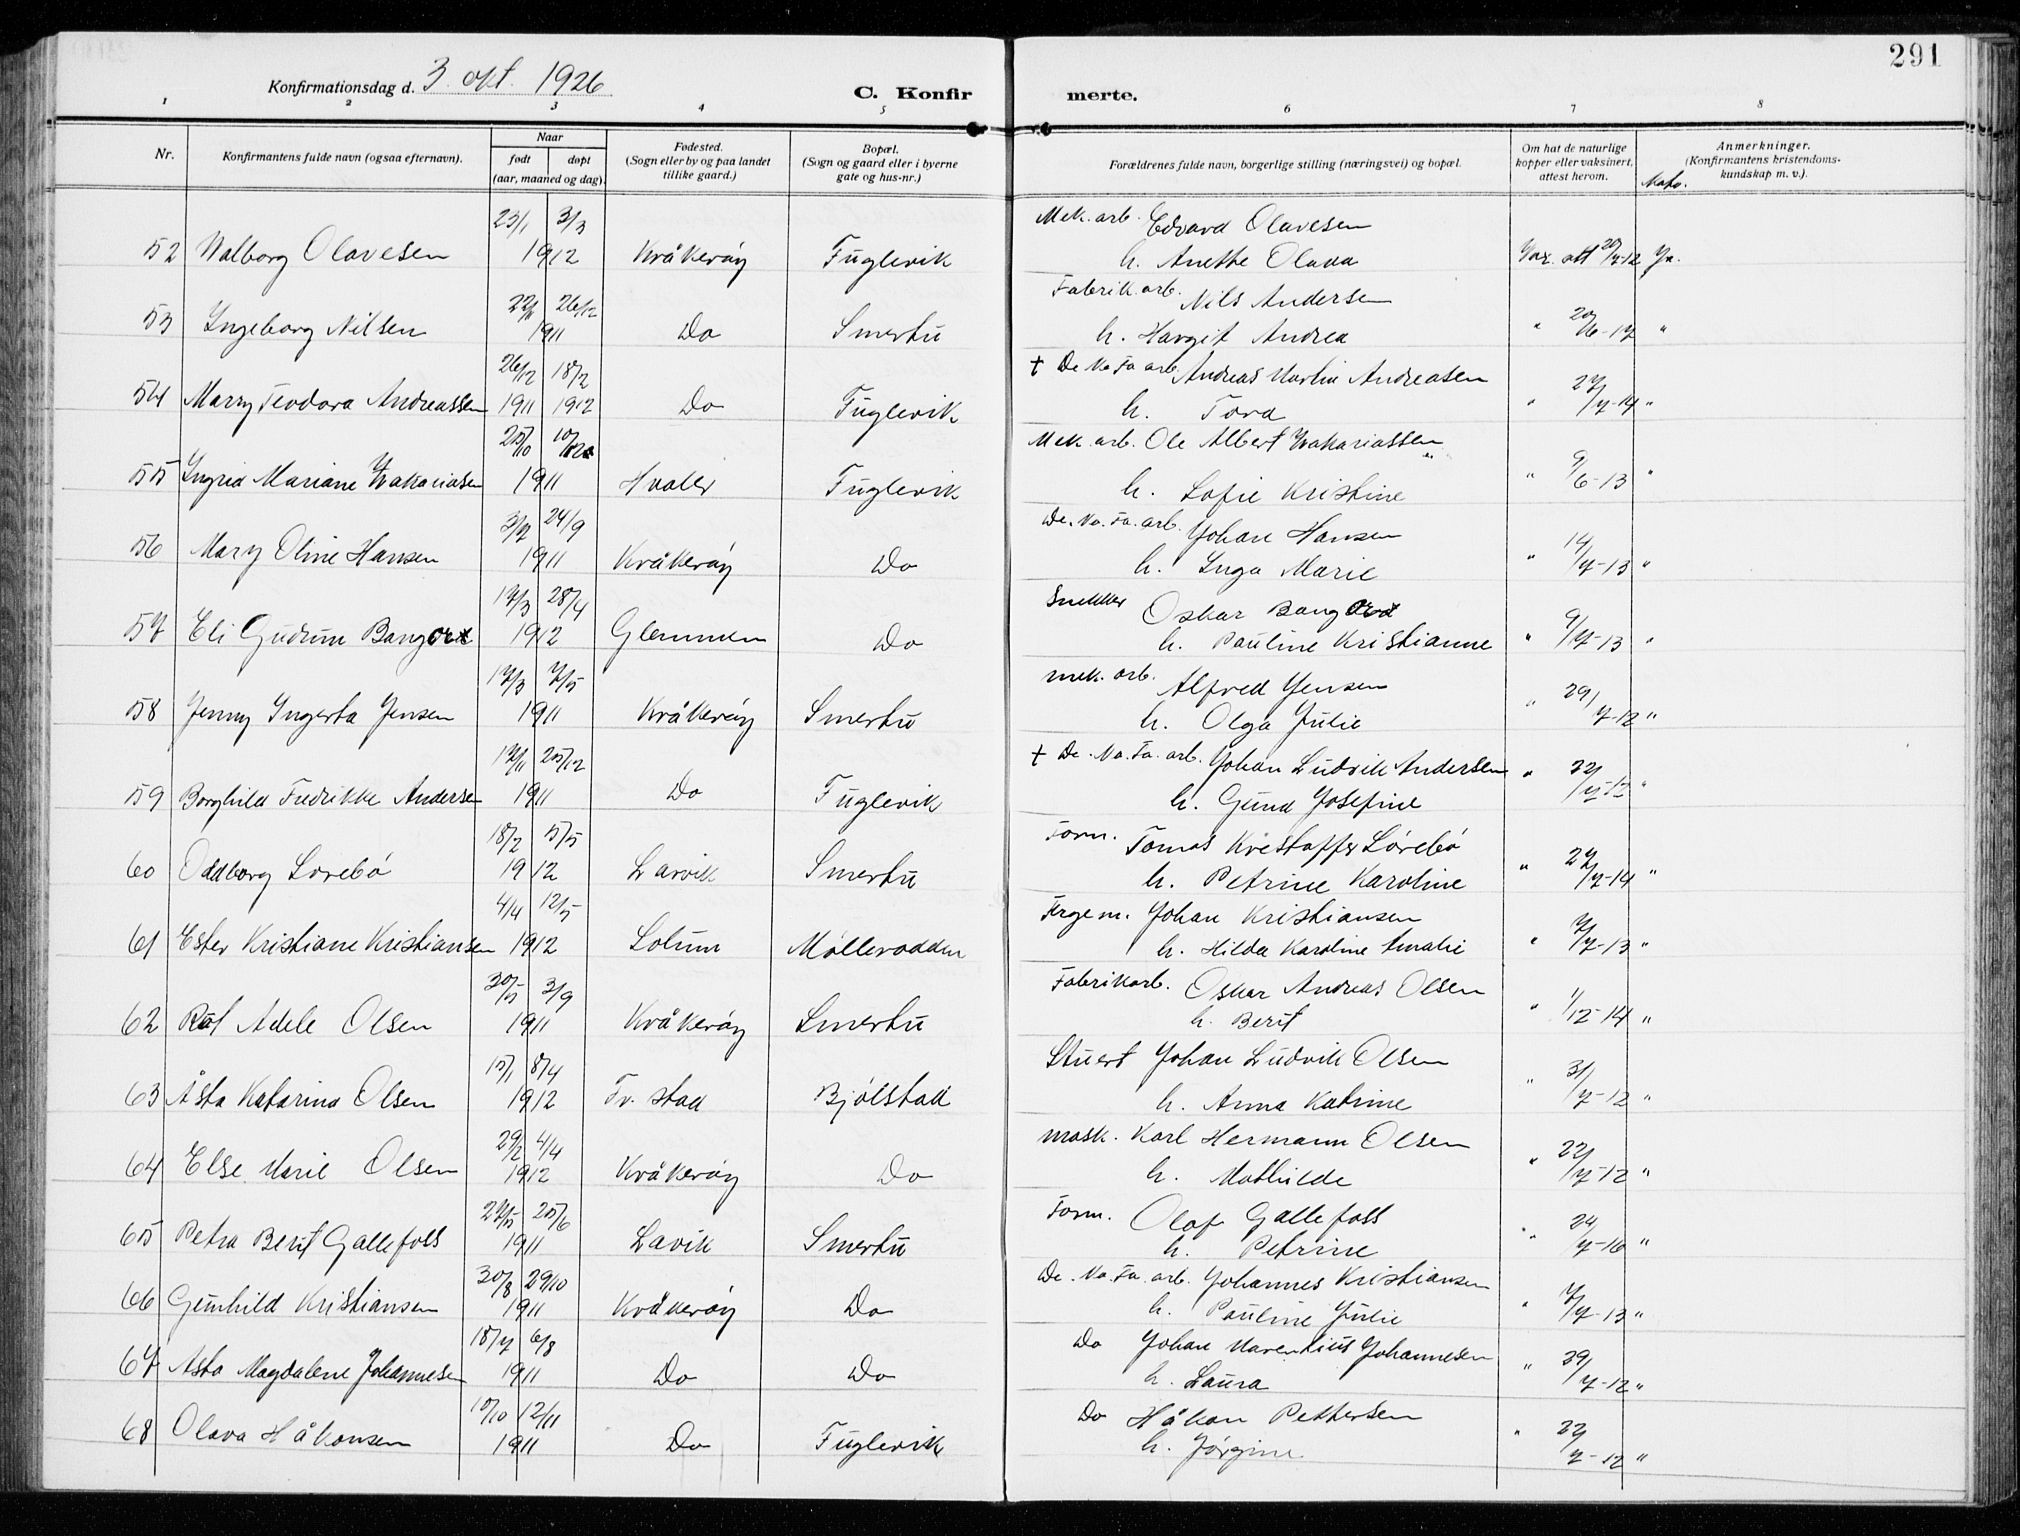 291
Konfirmationsdag d. 3. okt. 1926
C. Konfir merte.
1 2 3 4 5 6 7 8
Nr.
Konfirmantens fulde navn (ogsaa efternavn).
Naar
født døpt
(aar, maaned og dag).
Fødested.
(Sogn eller by og paa landet
tillike gaard.)
Bopæl.
(Sogn og gaard eller i byerne
gate og hus-nr.)
Forældrenes fulde navn, borgerlige stilling (næringsvei) og bopæl.
Om hat de naturlige
kopper eller vaksinert,
attest herom.
Anmerkninger.
(Konfirmantens kristendoms-
kundskap m. v.).
23/1 3/3 Mek. arb. Edvard Olavesen
52 Valborg Olavesen 1912 Kråkerøy Fuglevik h. Anethe Olava Vax. att 7-12 Ja.
22/11 26/12 Fabrik. arb. Nils Andersen
53 Ingeborg Nilsen 1911 Do Smertu h. Hargit Andrea " 6-17 "
26/12 18/2 † De. No. Fa. arb. Andreas Martin Andreasen
54 Marry Teodora Andreassen 1911 1912 Do Fuglevik h. Tora " 27/7-14 "
25/10 10/12 Mek. arb. Ole Albert Zakariassen
55 Ingrid Mariane Zakariasen 1911 Hvaler Fuglevik h. Sofie Kristine " 9/6-13 "
3/7 24/9 De. No. Fa. arb. Johan Hansen
56 Mary Oline Hansen 1911 Kråkerøy Do h. Inga Marie " 14/7-13 "
17/3 28/4 Snekker Oskar Bang
57 Eli Gudrun Bang 1912 Glemmen Do h. Pauline Kristianne " 9/7-13 "
17/3 7/5 mek. arb. Alfred Jensen
58 Jenny Ingerta Jensen 1911 Kråkerøy Smertu h. Olga Julie " 29/7-12 "
17/11 25/12 † De. No. Fa. arb. Johan Ludvik Andersen
59 Borghild Fredrikke Andersen 1911 Do Fuglevik h. Gund Josefine " 22/7-12 "
18/2 5/5 Form. Tomas Kristoffer Sørebø
60 Oddborg Sørebø 1912 Larvik Smertu h. Petrine Karoline " 27/7-14 "
4/4 12/5 Fergem. Johan Kristiansen
61 Ester Kristiane Kristiansen 1912 Solum Møllerodden h. Hilda Karoline Amalie " 7/7-13 "
30/5 3/9 Fabrikarb. Oskar Andreas Olsen
62 Rut Adele Olsen 1911 Kråkerøy Smertu h. Berit " 1/12-14 "
15/1 8/4 Stuert Johan Ludvik Olsen
63 Åsta Katarina Olsen 1912 Fr. stad Bjølstad h. Anna Katrine " 31/7-12 "
29/2 4/4 mask. Karl Hermann Olsen
64 Else Marie Olsen 1912 Kråkerøy Do h. Mathilde " 22/7-12 "
27/5 25/6 Form. Olaf Gallefoss
65 Petra Berit Gallefoss 1911 Lavik Smertu h. Petrine " 24/7-16 "
30/8 29/10 De. No. Fa. arb. Johannes Kristiansen
66 Gunhild Kristiansen 1911 Kråkerøy Do h. Pauline Julie " 7/7-13 "
18/7 6/8 Do Johan Marentius Johannesen
67 Asta Magdalene Johannesen 1911 Do Do h. Laura " 7-12 "
10/10 12/11 Do Håkon Pettersen
68 Olava Håkonsen 1911 Do Fuglevik h. Jørgine " 22/7-12 "